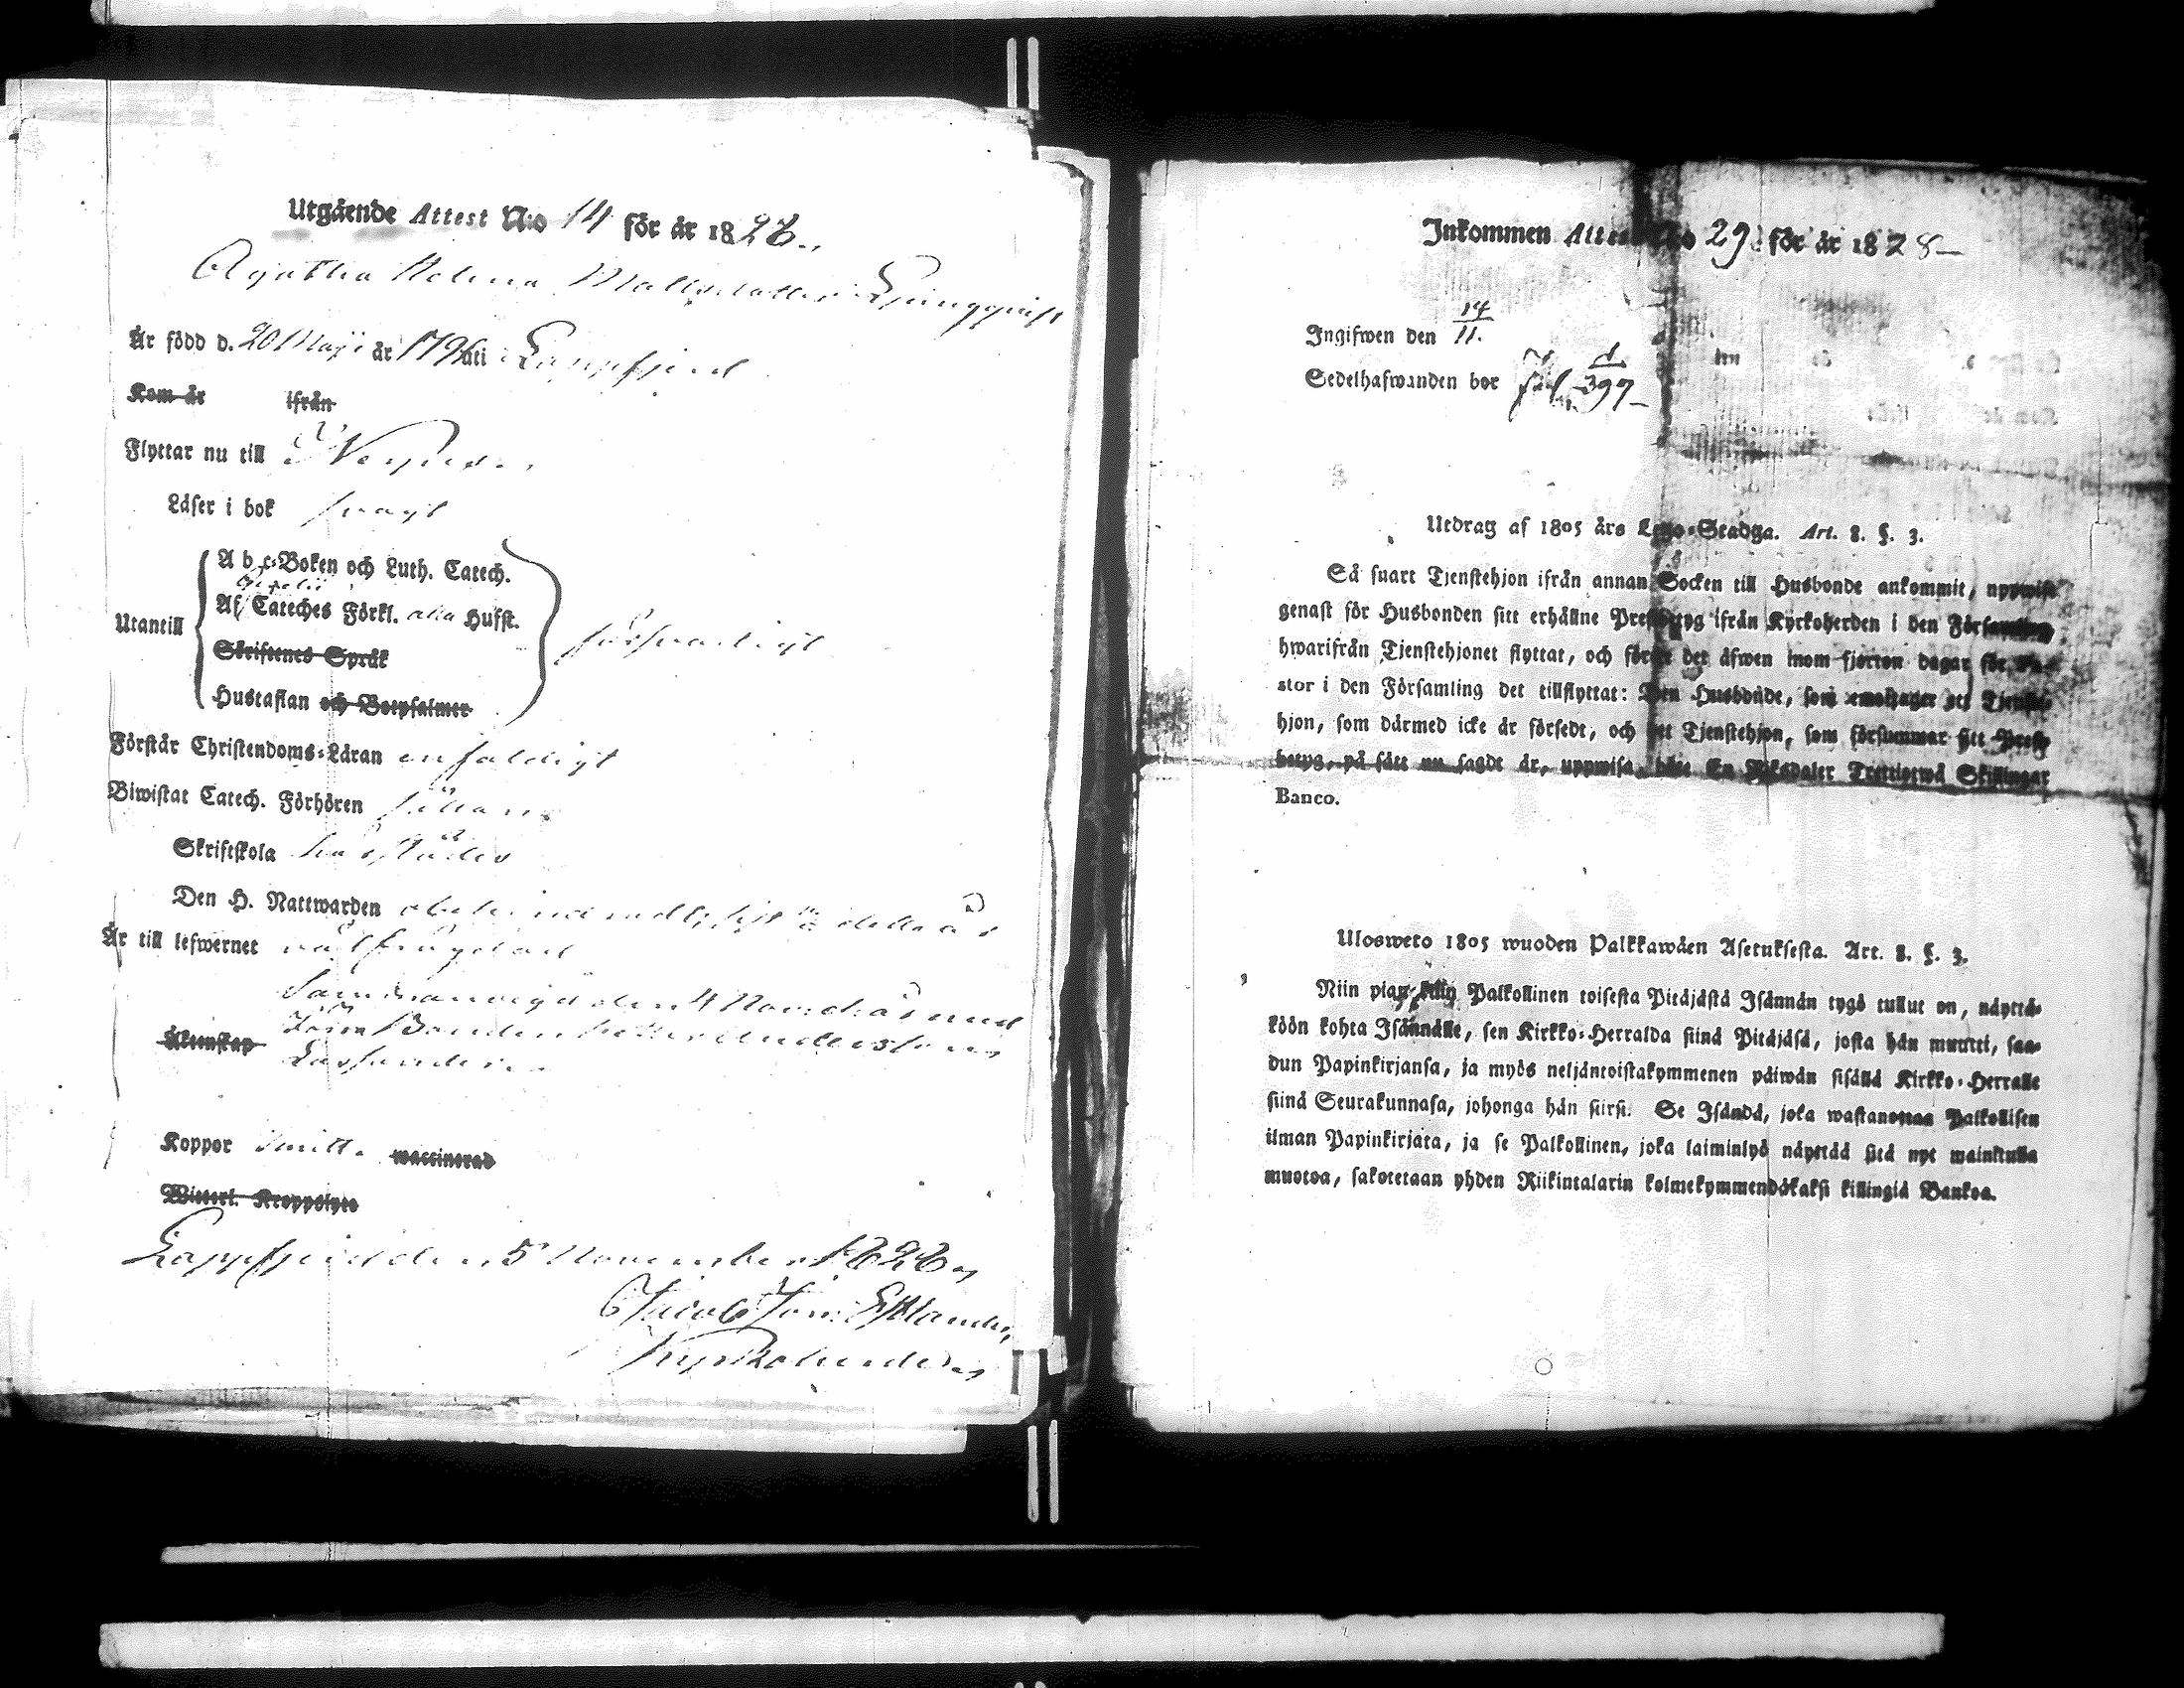 Utgående Attest N:o 14 för år 1828.
Agatha Helena Mattsdotter Ljungqvist
Är född d. 20 Maji år 1796 uti Lappfjerd
Kom år ifrån
Flyttar nu till
Läser i bok svagt
A b c-Boken och Luth. Catech.
Gezelii
Af Cateches Förkl. alla Husst.
Utantill försvarligt
Skriftenes Språk
Hustaflan och Botpsalmer
Förstår Christendoms-Läran enfaldigt
Biwistat Catech. Förhören sällan
Skriftskola
Den H. Nattwarden obehindradt, sist i detta år
Är till lefwernet välfrägdad
Sammanvigd den 4 Nov. d. år med
Äktenskap
Koppor haft. waccinerad
Wittert. Kroppslyte
Lappfjerd den 5 November 1828
Jacob Joh: Estlander
Kyrkoherde
Inkommen Attest N:o 29 för år 1828
Ingifwen den 14/11.
Sedelhafwanden bor 397
Utdrag af 1805 års Lego-Stadga. Art. 8. §. 3.
Så snart Tjenstehjon ifrån annan Socken till Husbonde ankommit, uppwise
genast för Husbonden sitt erhållne Prestbetyg ifrån Kyrkoherden i den Församling
hwarifrån Tjenstehjonet flyttat, och förete det äfwen inom fjorton dagar för Pa-
stor i den Församling det tillflyttat: Den Husbonde, som emottager ett Tjenste-
hjon, som därmed icke är försedt, och det Tjenstehjon, som försummar sitt Prest-
betyg, på sätt nu sagdt är, uppwisa, böte En Riksdaler Trettiotwå Skillingar
Banco.
Ulosweto 1805 wuoden Palkkawäen Asetuksesta. Art. 8. §. 3.
Niin pian kuin Palkollinen toisesta Pitäjästä Isännän tygö tullut on, näyttä-
köön kohta Isännälle, sen Kirkko-Herralda siinä Pitäjäsä, josta hän muutti, saa-
dun Papinkirjansa, ja myös neljäntoistakymmenen päiwän sisällä Kirkko-Herralle
siinä Seurakunnasa, johonga hän siirsi. Se Isändä, joka wastanottaa Palkollisen
ilman Papinkirjata, ja se Palkollinen, joka laiminlyö näyttää sitä nyt mainitulla
muotoa, sakotetaan yhden Riikintalarin kolmekymmendäkaksi killingiä Bankoa.